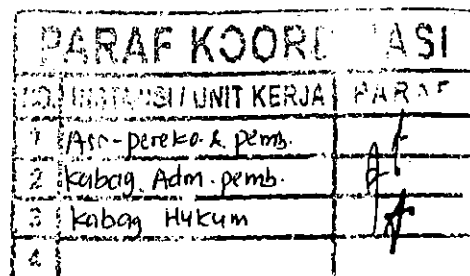 PARAF KOORDINASI
NO. INSTANSI / UNIT KERJA PARAF
1 Ass-pereko. & pemb.
2 Kabag. Adm. pemb.
3 Kabag Hukum
4